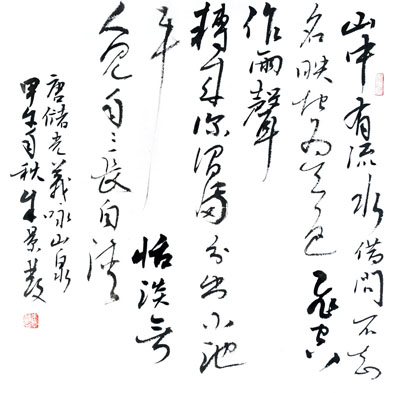 山中有流水借問不知
名映地为天色飛空
作雨聲
轉来深澗滿分出小池
平 恬淡無
人見年年長自清
唐儲光羲咏山泉
甲午秋朱景